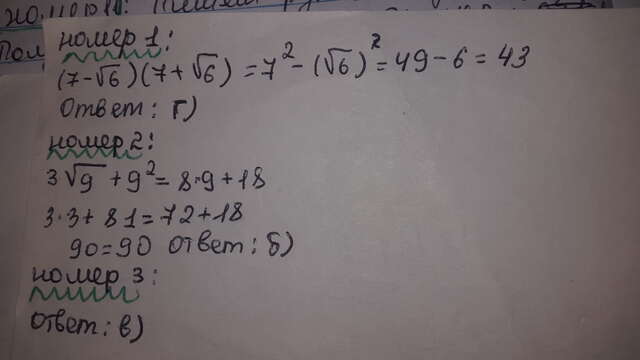 номер 1:
(7-√6)(7+√6) = 7² - (√6)² = 49 - 6 = 43
Ответ: г)
номер 2:
3√9 + 9² = 8·9 + 18
3·3 + 81 = 72 + 18
90 = 90 ответ: б)
номер 3:
ответ: в)